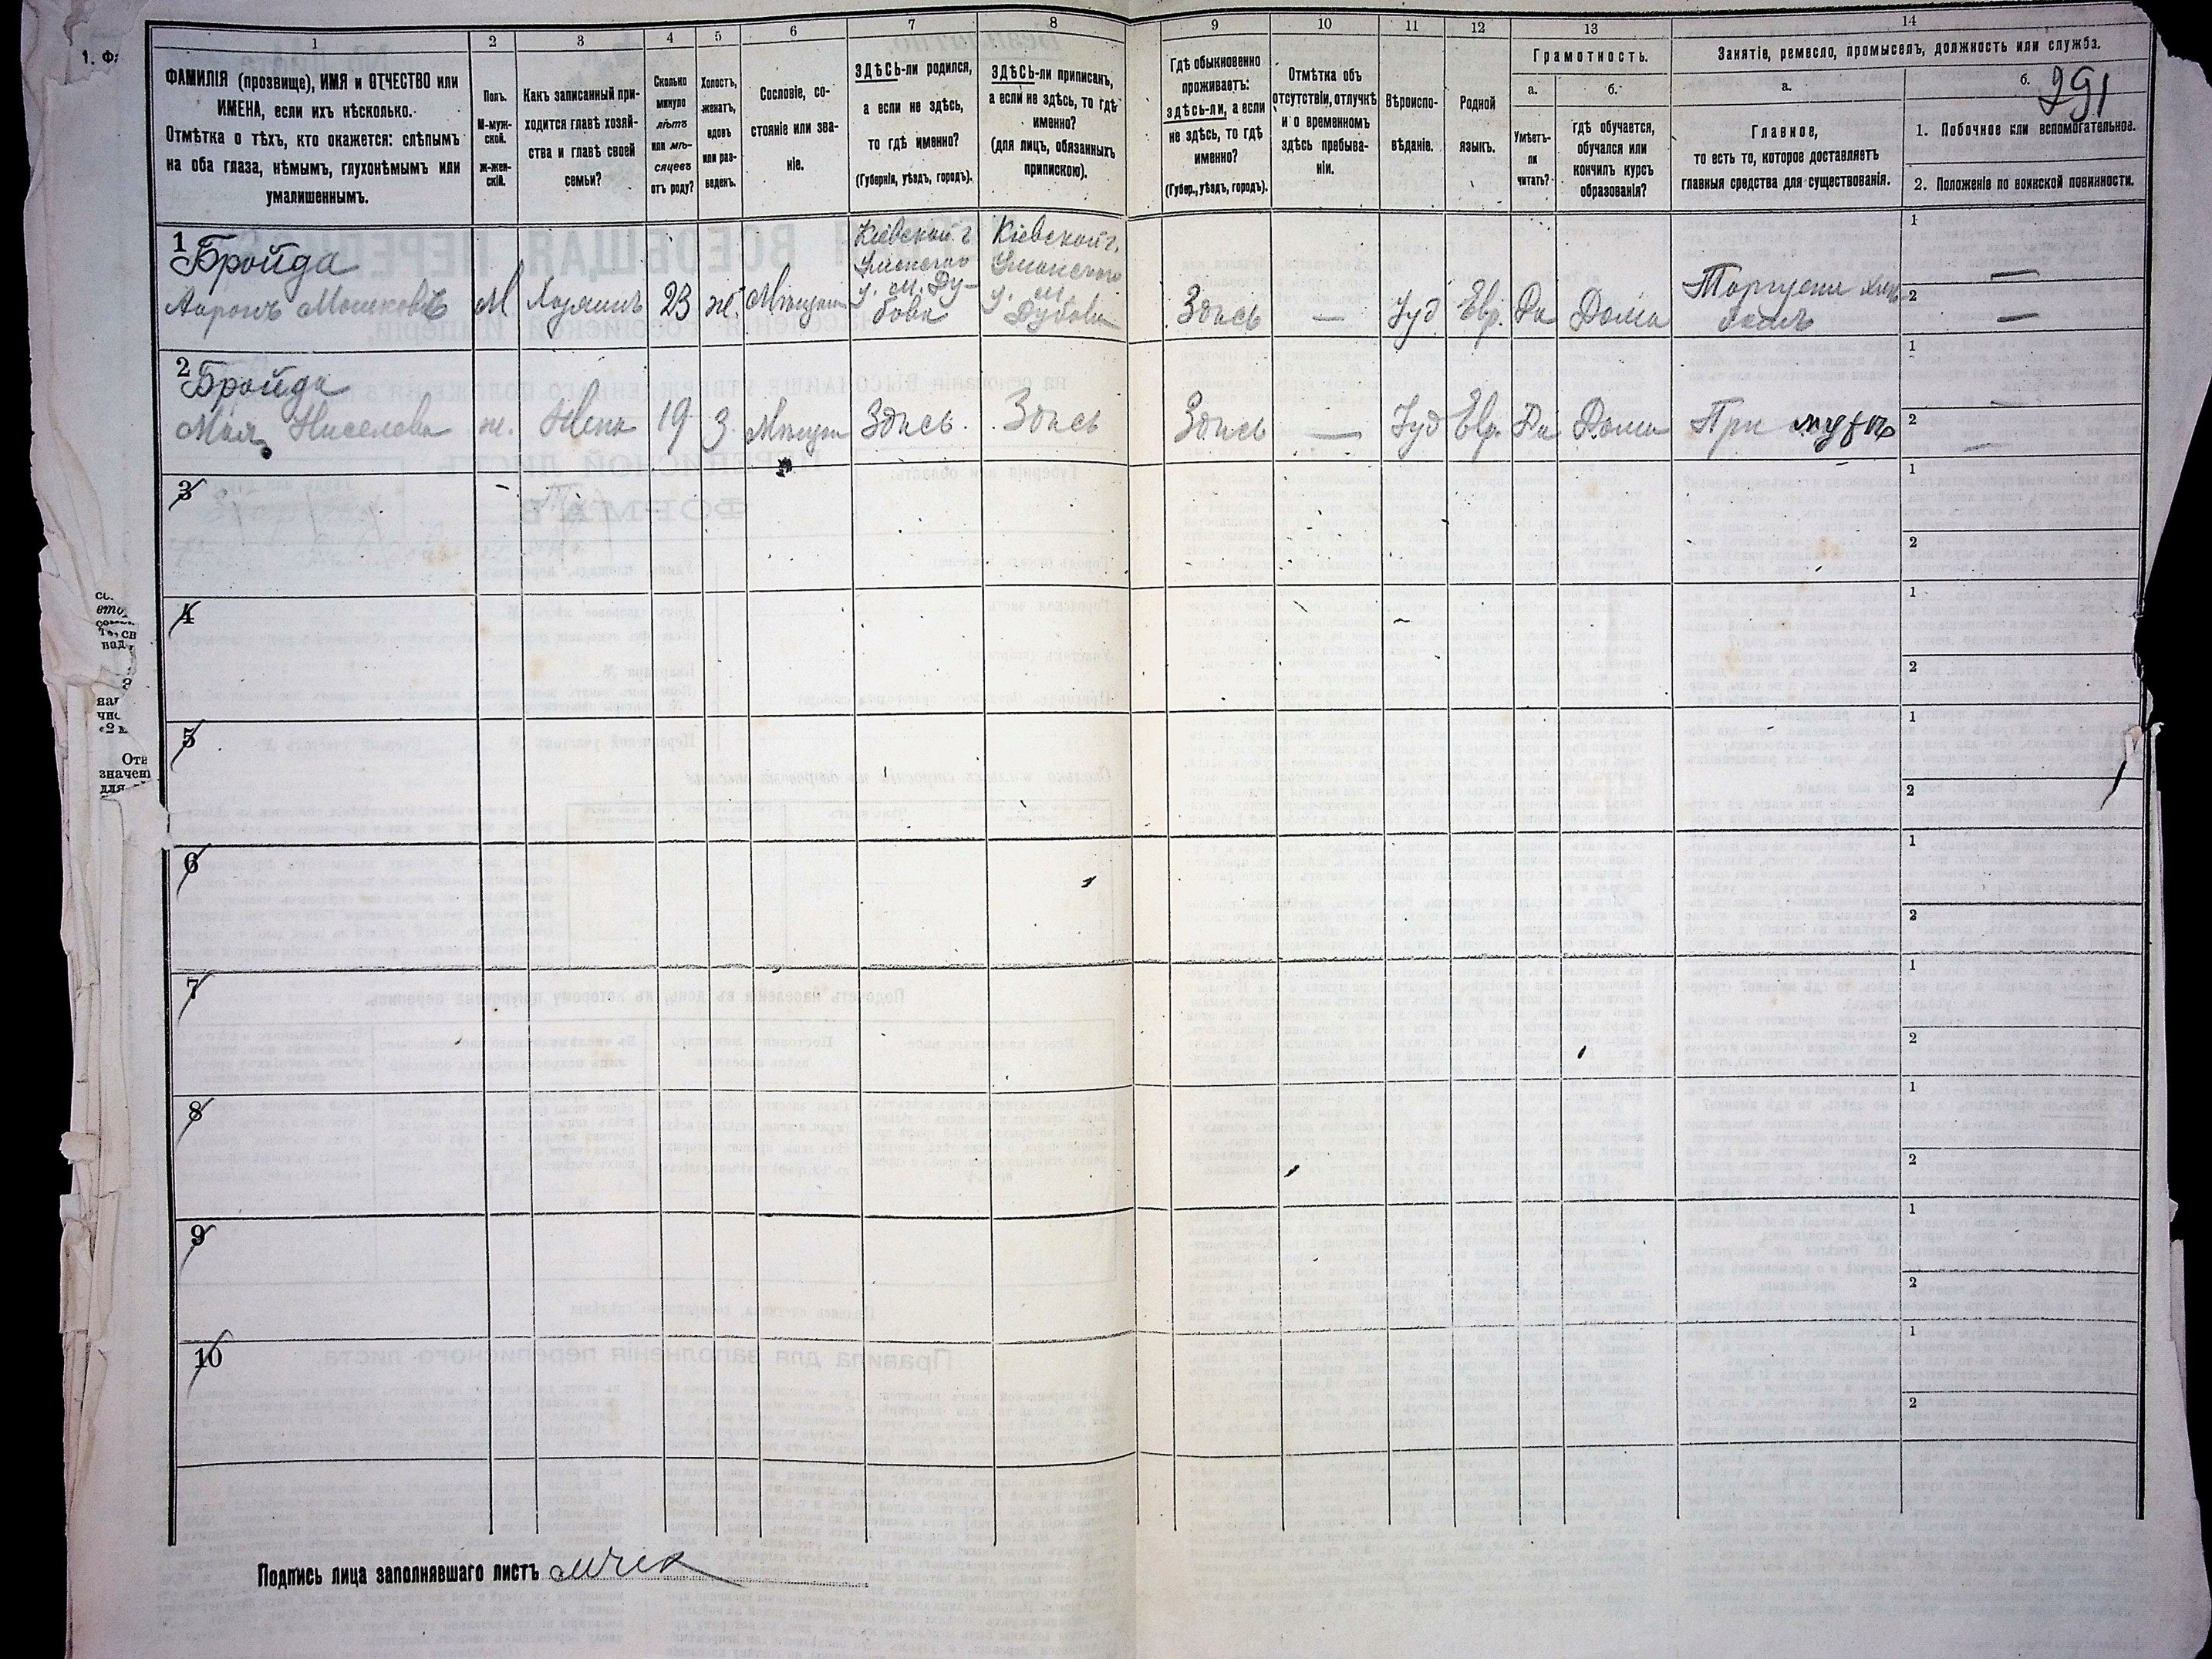 1 2 3 4 5 6 7 8 9 10 11 12 13 14
ФАМИЛІЯ (прозвище), ИМЯ и ОТЧЕСТВО или
ИМЕНА, если ихъ нѣсколько.
Отмѣтка о тѣхъ, кто окажется: слѣпымъ
на оба глаза, нѣмымъ, глухонѣмымъ или
умалишеннымъ.
Полъ.
М-муж-
ской.
Ж-жен-
скій.
Какъ записанный при-
ходится главѣ хозяй-
ства и главѣ своей
семьи?
Сколько
минуло
лѣтъ
или мѣ-
сяцевъ
отъ роду?
Холостъ,
женатъ,
вдовъ
или раз-
веденъ.
Сословіе, со-
стояніе или зва-
ніе.
ЗДѢСЬ-ли родился,
а если не здѣсь,
то гдѣ именно?
(Губернія, уѣздъ, городъ).
ЗДѢСЬ-ли приписанъ,
а если не здѣсь, то гдѣ
именно?
(для лицъ, обязанныхъ
припискою).
Гдѣ обыкновенно
проживаетъ:
здѣсь-ли, а если
не здѣсь, то гдѣ
именно?
(Губер., уѣздъ, городъ).
Отмѣтка объ
отсутствіи, отлучкѣ
и о временномъ
здѣсь пребыва-
ніи.
Вѣроиспо-
вѣданіе.
Родной
языкъ.
Грамотность.
а.
Умѣетъ-
ли
читать?
б.
гдѣ обучается,
обучался или
кончилъ курсъ
образованія?
Занятіе, ремесло, промыселъ, должность или служба.
а.
Главное,
то есть то, которое доставляетъ
главныя средства для существованія.
б.
291
1. Побочное или вспомогательное.
2. Положеніе по воинской повинности.
1 Бройда
Ааронъ Мошковъ
М
Хозяинъ
23
ж.
Мѣщан
Кіевской г.
Уманского
у. м. Ду-
бова
Кіевской г.
Уманского
у. м.
Дубова
Здѣсь
—
Іуд
Евр.
Да
Дома
1 —
2 —
2 Бройда
Мая Киселева
ж.
Жена
19
З.
Мѣщан
Здѣсь
Здѣсь
Здѣсь
—
Іуд
Евр.
Да
Дома
При мужѣ
1 —
2 —
3
1
2
4
1
2
5
1
2
6
1
2
7
1
2
8
1
2
9
1
2
10
1
2
Подпись лица заполнявшаго листъ